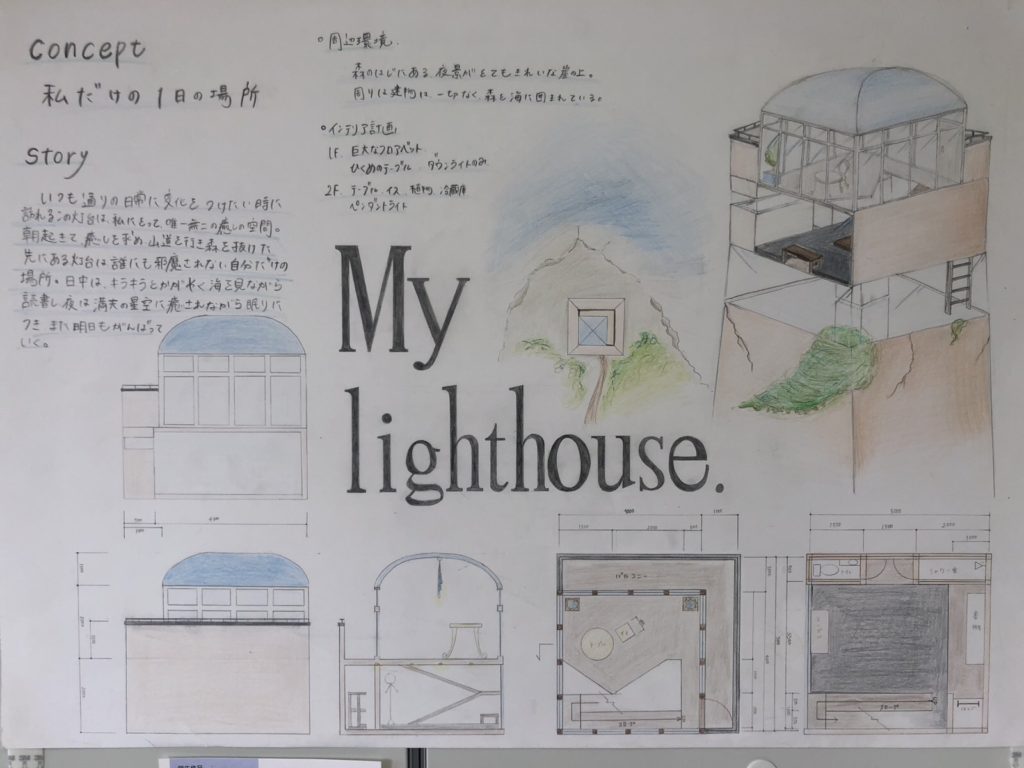 Concept
私だけの1日の場所
Story
いつも通りの日常に変化をつけたい時に
訪れるこの灯台は、私にとって唯一無二の癒しの空間。
朝起きて癒しを求め山道を行き森を抜けた
先にある灯台は誰にも邪魔されない自分だけの
場所。日中は、キラキラとかがやく海を見ながら
読書し夜は満天の星空に癒されながら眠りに
つきまた明日もがんばって
いく。
○周辺環境
森のはじにある、夜景がとてもきれいな崖の上。
周りは建物は、一切なく、森と海に囲まれている。
○インテリア計画
1F. 巨大なフロアベット
ひくめのテーブル ダウンライトのみ
2F. テーブル イス 植物 冷蔵庫
ペンダントライト
My
lighthouse.
バルコニー
テーブル
スロープ